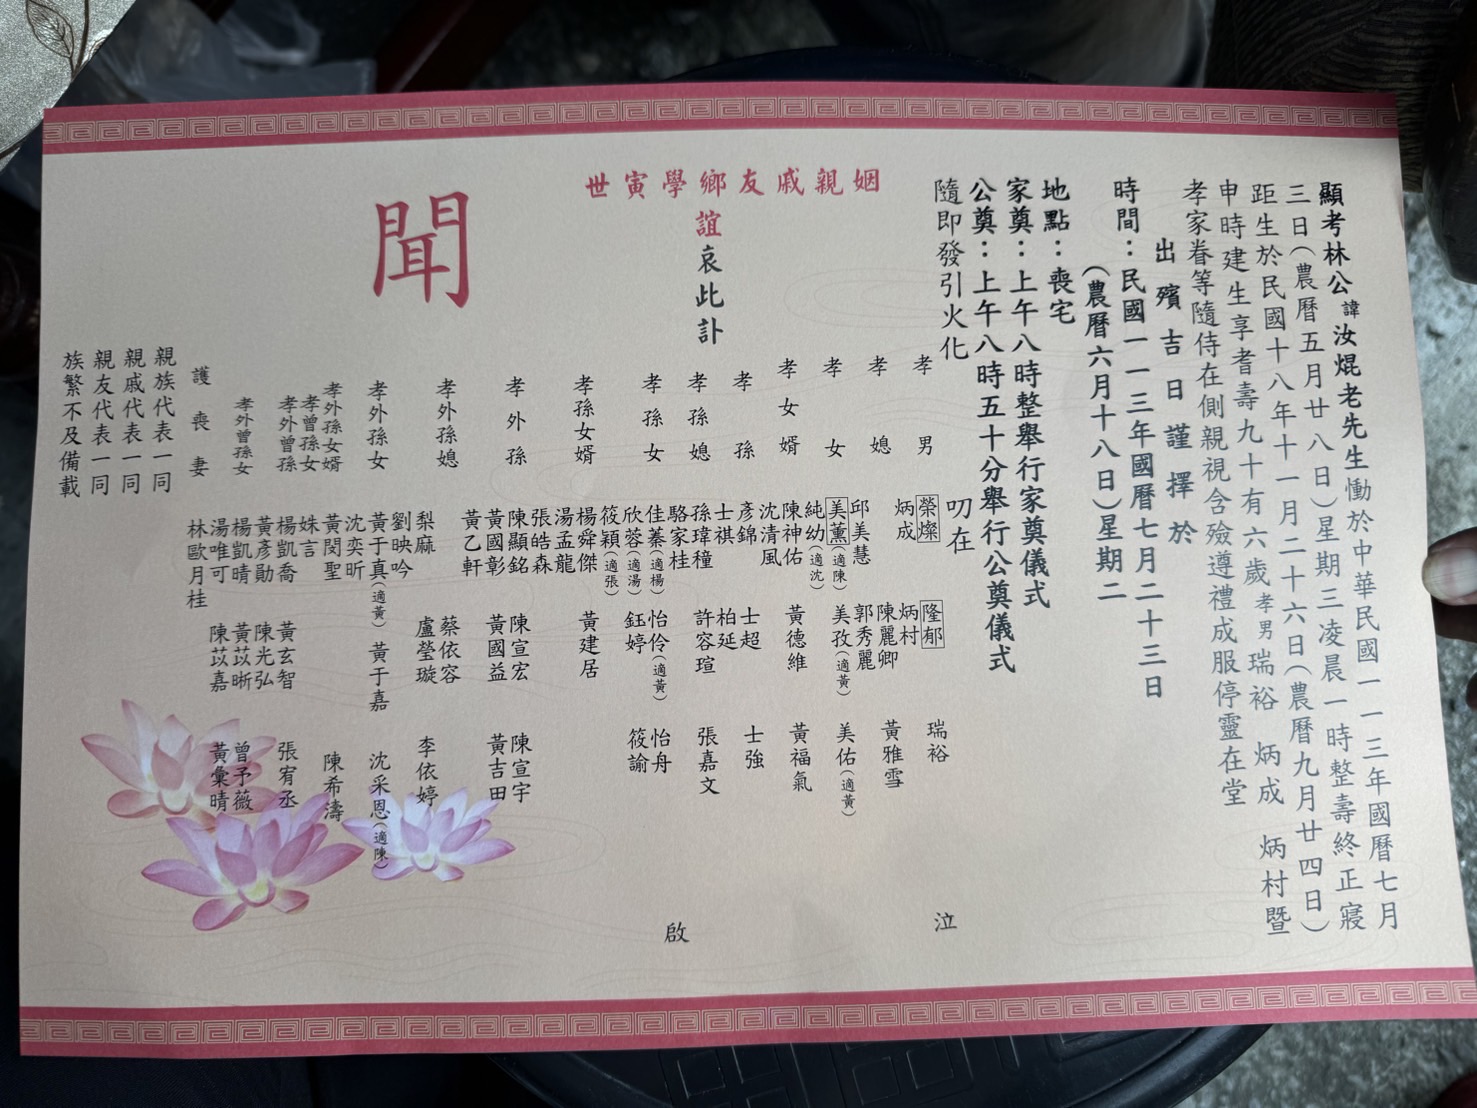 顯考林公諱汝焜老先生慟於中華民國一一三年國曆七月
三日(農曆五月廿八日)星期三凌晨一時整壽終正寢
距生於民國十八年十一月二十六日(農曆九月廿四日)
申時建生享耆壽九十有六歲孝男瑞裕 炳成 炳村暨
孝家眷等隨侍在側親視含殮遵禮成服停靈在堂
出殯吉日謹擇於
時間：民國一一三年國曆七月二十三日
(農曆六月十八日)星期二
地點：喪宅
家奠：上午八時整舉行家奠儀式
公奠：上午八時五十分舉行公奠儀式
隨即發引火化
叨在
姻親戚友鄉學寅世
誼哀此訃
聞
孝男 榮燦 隆郁 瑞裕
炳成 炳村
孝媳 邱美慧 郭秀麗 黃雅雪
陳麗卿
孝女 美薰(適陳) 美孜(適黃) 美佑(適黃)
純幼(適沈)
孝女婿 陳神佑 黃德維 黃福氣
沈清風
孝孫 彥錦 士超 士強
士祺 柏延
孝孫媳 孫瑋穜 許容瑄 張嘉文
駱家桂
孝孫女 佳蓁(適楊) 怡伶(適黃) 怡舟
欣蓉(適湯) 鈺婷 筱諭
筱穎(適張)
孝孫女婿 楊舜傑 黃建居
湯孟龍
張皓森
孝外孫 陳顯銘 陳宣宏 陳宣宇
黃國彰 黃國益 黃吉田
黃乙軒
孝外孫媳 梨麻 蔡依容 李依婷
劉映吟 盧瑩璇
孝外孫女 黃于真(適黃) 黃于嘉 沈采恩(適陳)
沈奕昕
孝外孫女婿 黃閔聖 陳希濤
孝曾孫女 姝言
孝外曾孫 楊凱喬 黃玄智 張宥丞
黃彥勛 陳光弘
孝外曾孫女 楊凱晴 黃苡晰 曾予薇
湯唯可 陳苡嘉 黃彙晴
護喪妻 林歐月桂
親族代表一同
親戚代表一同
親友代表一同
族繁不及備載
泣
啟